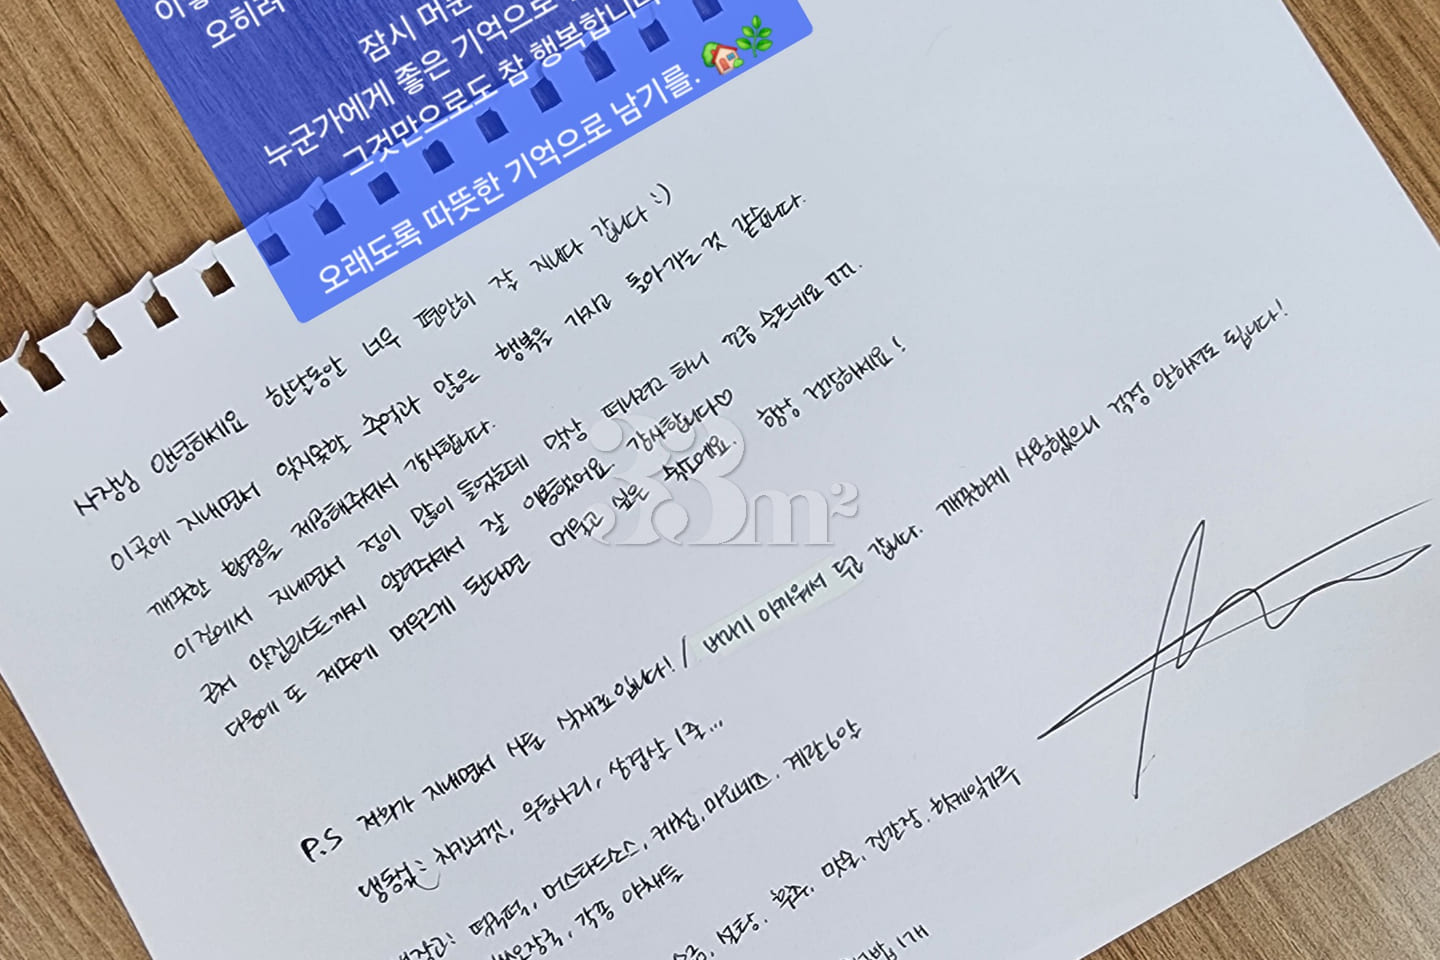 오히려
잠시 머문
누군가에게 좋은 기억으로
그것만으로도 참 행복합니다
오래도록 따뜻한 기억으로 남기를.
사장님 안녕하세요 한달동안 너무 편안히 잘 지내다 갑니다 :)
이곳에 지내면서 잊지못할 추억과 많은 행복을 가지고 돌아가는 것 같습니다.
깨끗한 환경을 제공해주셔서 감사합니다.
이 집에서 지내면서 정이 많이 들었는데 막상 떠나려고 하니 조금 슬프네요 ㅠㅠ.
근처 맛집리스트까지 알려주셔서 잘 이용했어요. 감사합니다♡
다음에 또 제주에 머무르게 된다면 머물고 싶은 숙소예요. 항상 건강하세요!
33m²
P.S 저희가 지내면서 사둔 식재료입니다! / 버리기 아까워서 두고 갑니다. 깨끗하게 사용했으니 걱정 안하셔도 됩니다!
냉동실: 치킨너겟, 우동사리, 삼겹살 1줄...
냉장고: 머스타드소스, 케첩, 마요네즈, 계란6알
각종 야채들
소금, 설탕, 후추, 맛술, 진간장, 핫케익가루
1개